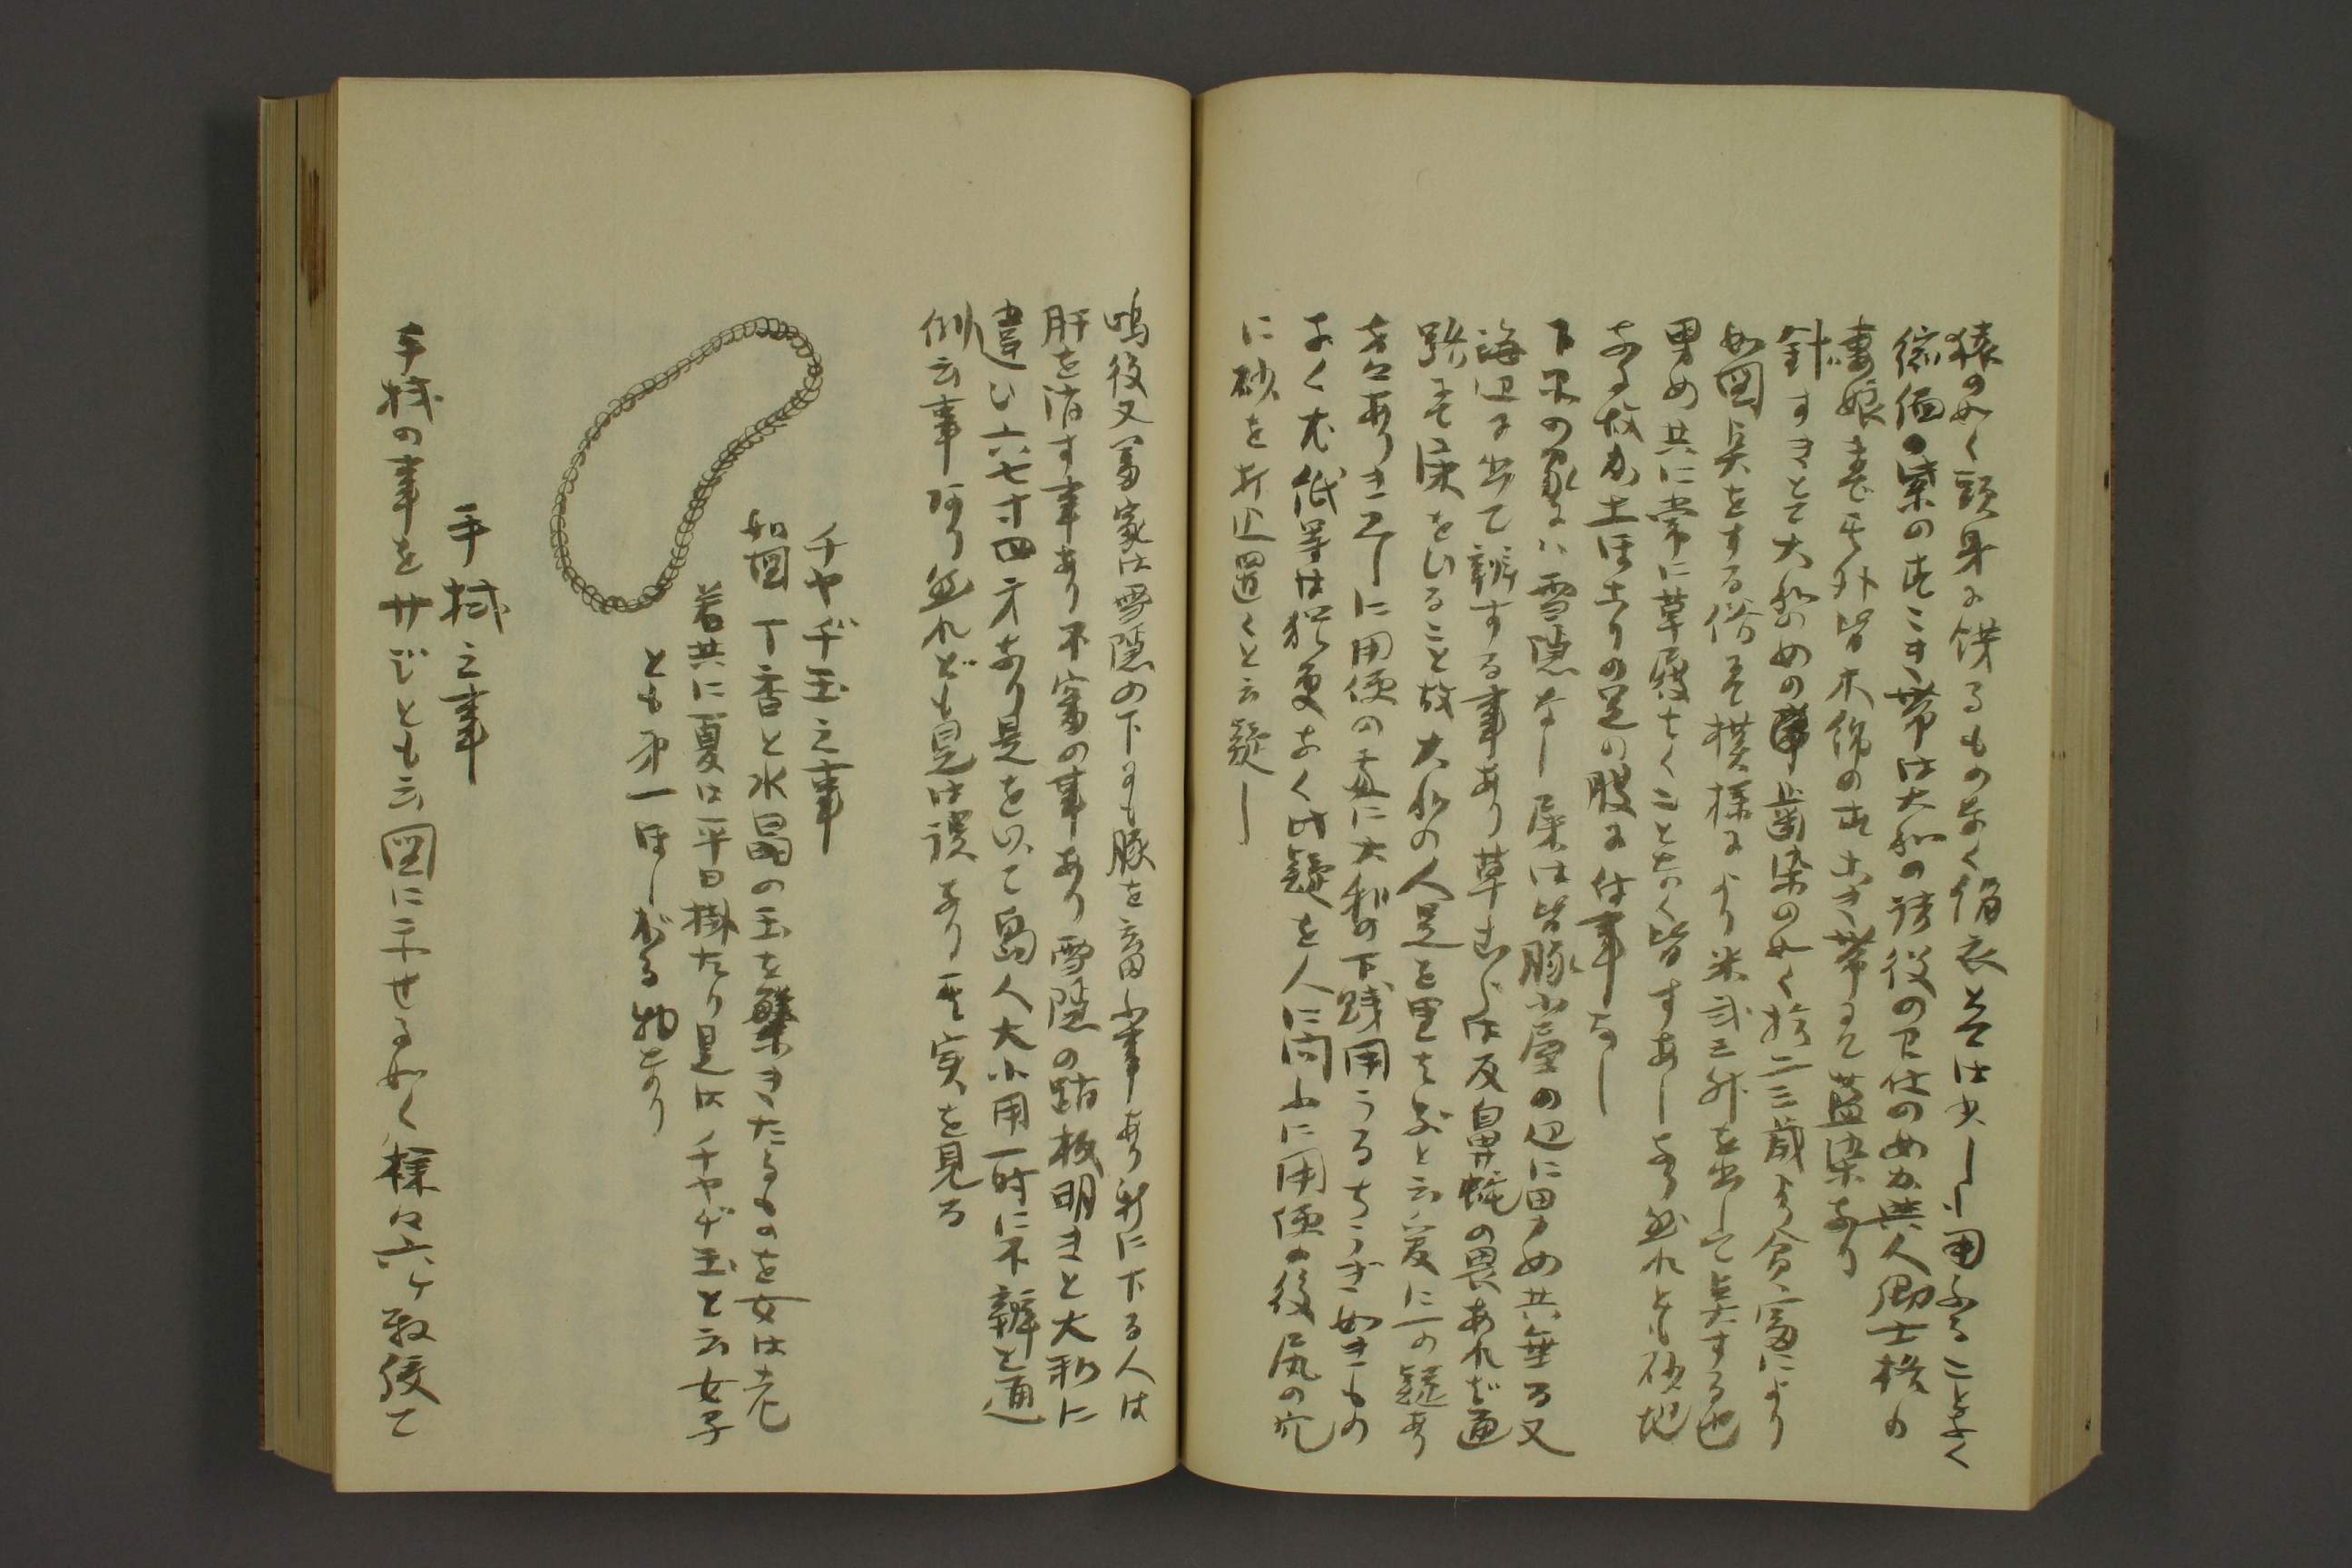 猿の如く頭身に餝るもの多く絹衣是は少しも用ふることなく
縮緬の紫の赤ミき帯は大和の諸役の召仕の女か與人郷士格の
妻娘 其外皆木綿の古き帯にて藍染なり
針すきとて大和の女の歯染の如く拾二三歳より貧富により
如図兵をする俗にて模様により米弐三升を出して兵する也
男女共に常に草履はくことなく皆すあしなり然れども砂地
なる故か土ほこりの足の股に付事なし
下〻の家には雪隠なし屎は皆豚小屋の辺に男女共垂る又
海辺に出て辨する事あり草むらは反鼻蛇の畏あれば通
路にて尿をひること故大和の人足を
杯々ありき に用便の 大和の下賤用うる きもの
なく尤紙等は猶更なく此疑を人に問ふに用便の後尻の穴
に砂を打込置くと云疑し
嶋役又富家は雪隠の下にも豚を畜ふ事あり新に下る人は
肝を消す事あり不審の事あり雪隠の踏板明きと大和に
違ひ六七寸四方あり是を以て島人大小用一時に不辨と通
例云事阿り然れども是は誤なり其実を見る
チヤヂ玉之事
如図 丁香と水晶の玉を繋きたるものを女は老
若共に夏は平日掛たり是はチヤヂ玉と云女子
とも第一ほしがる物なり
手拭之事
手拭の事をサビとも云図に示せる如く様々六ヶ敷綾て